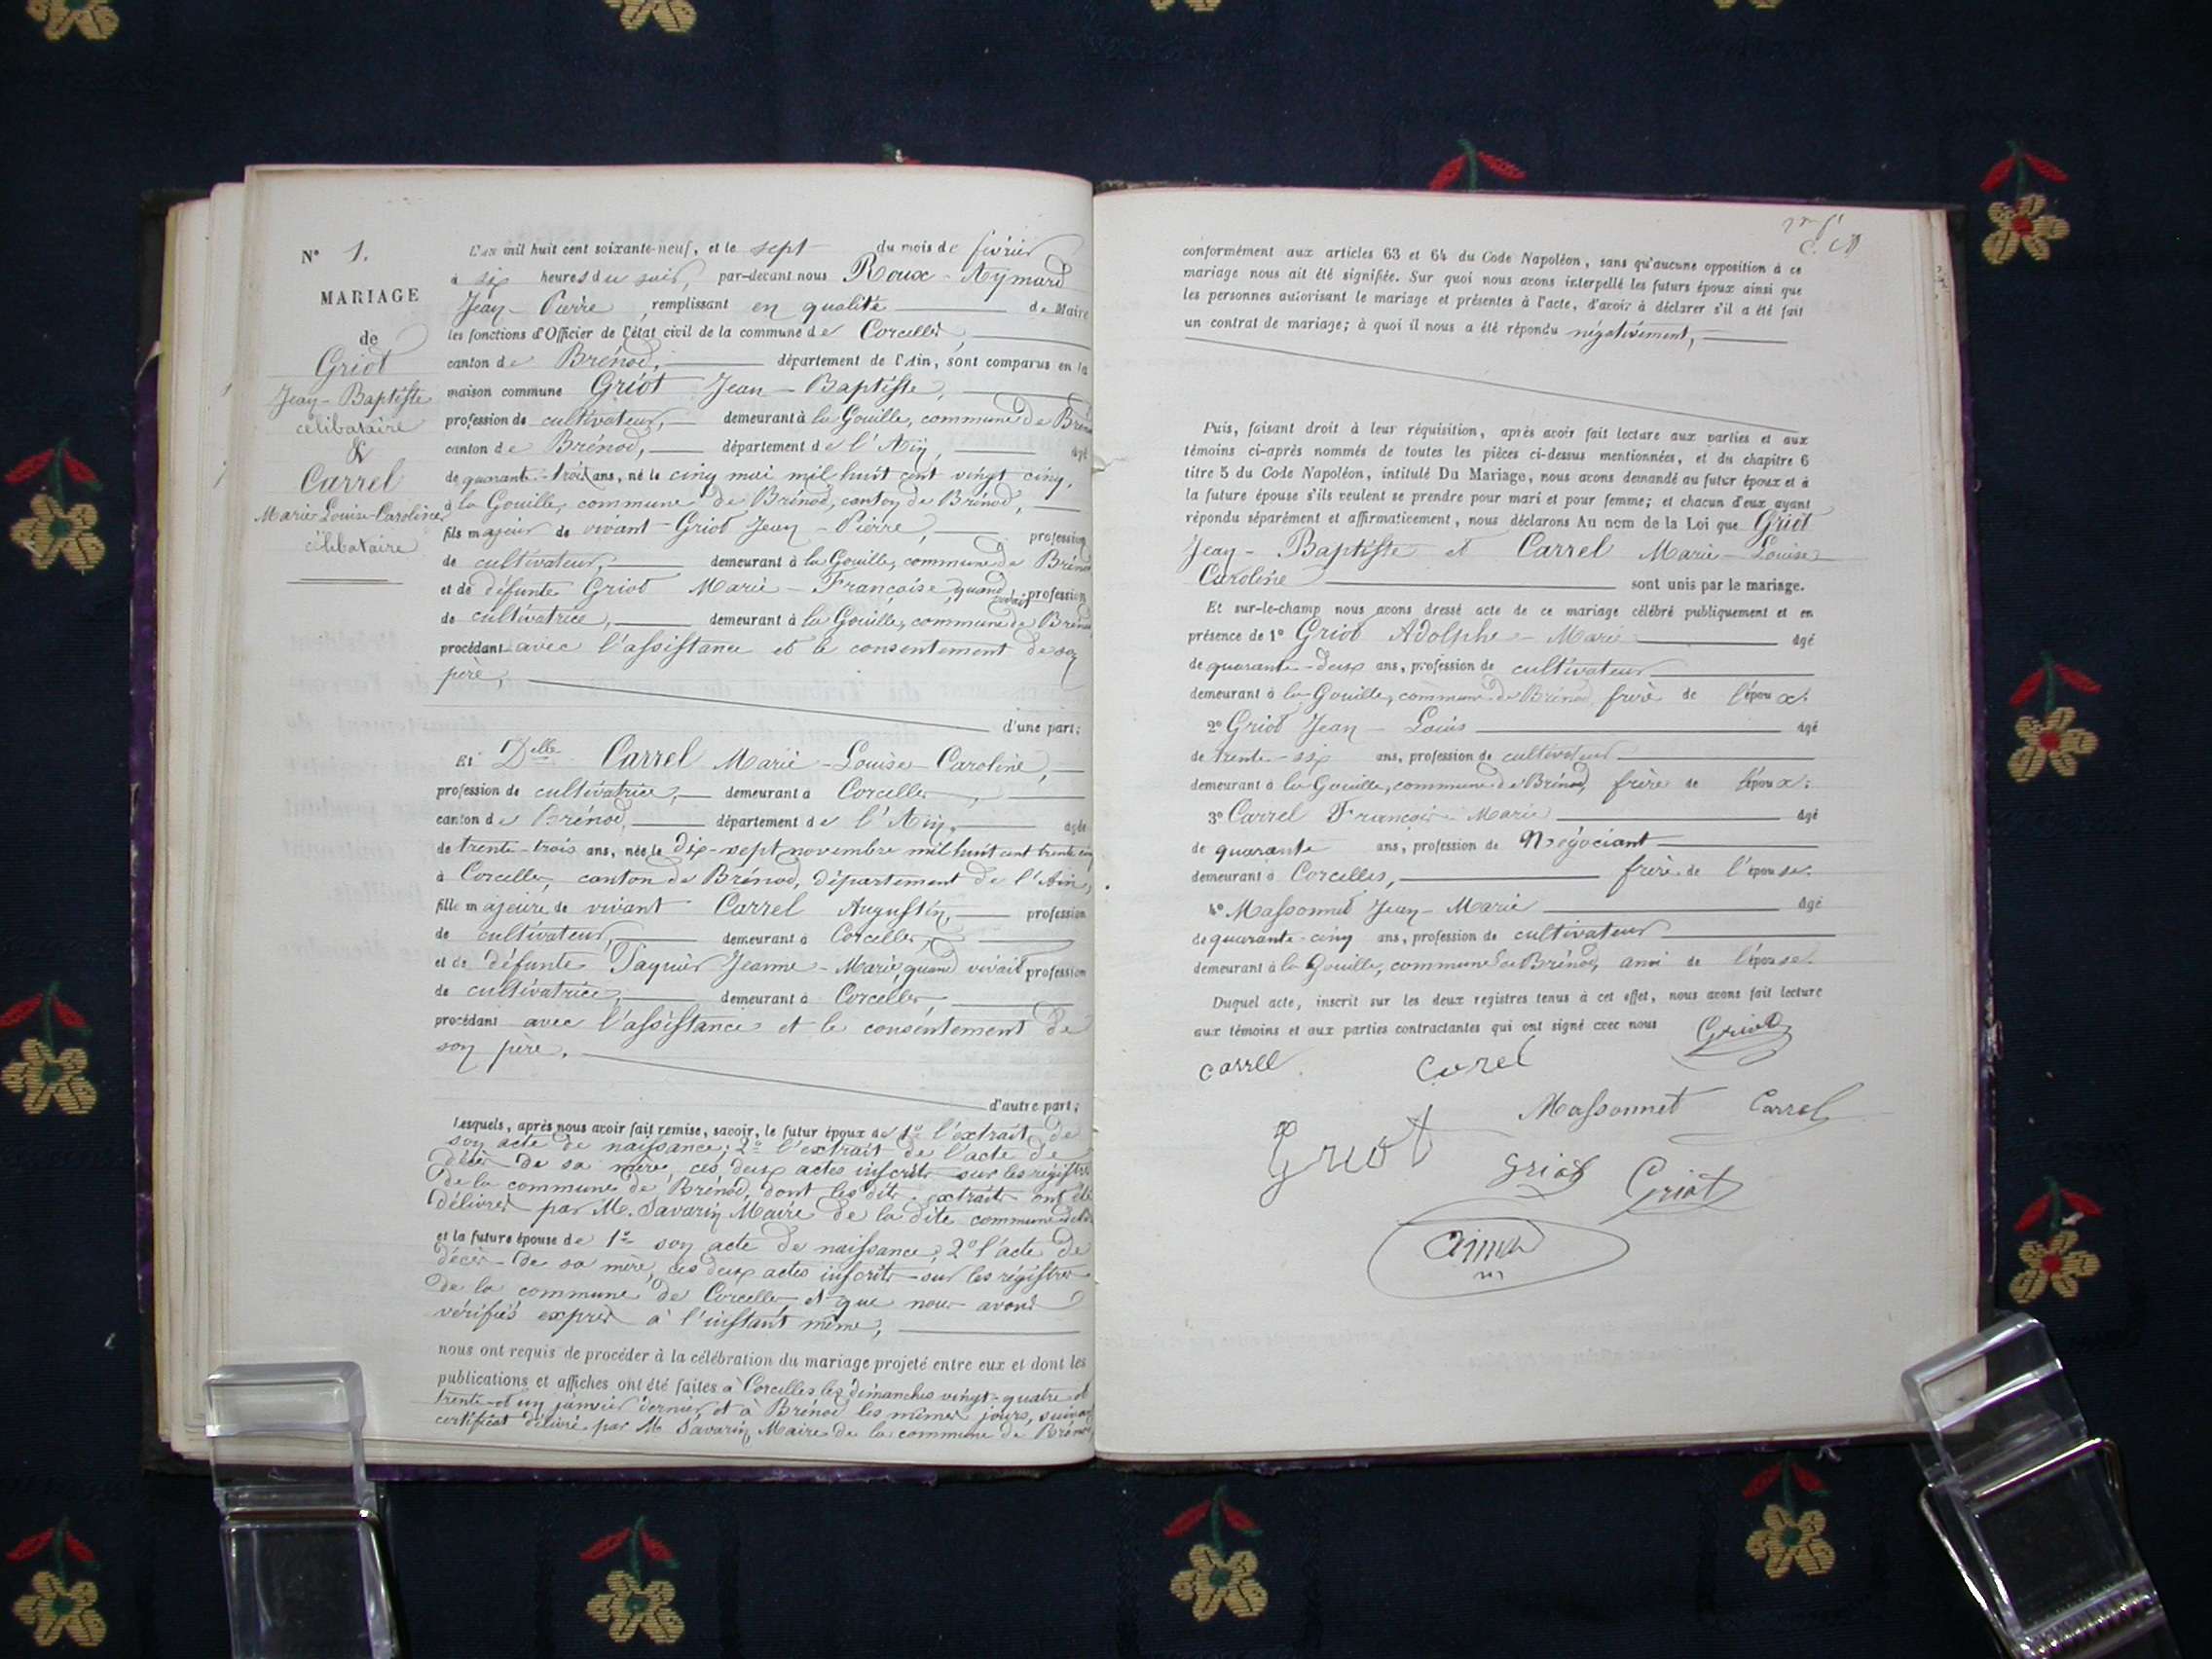 N° 1.
MARIAGE
de
Griot
Jean-Baptiste
célibataire
&
Carrel
Marie-Louise-Caroline
célibataire
L'an mil huit cent soixante-neuf, et le sept du mois de février
à six heures du soir, par-devant nous Roux-Aymard
Jean-Pierre, remplissant en qualité de Maire
les fonctions d'Officier de l'état civil de la commune de Corcelles,
canton de Brénod, département de l'Ain, sont comparus en la
maison commune Griot Jean-Baptiste,
profession de cultivateur, demeurant à la Gouille, commune de Brénod
canton de Brénod, département de l'Ain, âgé
de quarante-trois ans, né le cinq mai mil huit cent vingt cinq,
à la Gouille, commune de Brénod, canton de Brénod,
fils majeur de vivant Griot Jean-Pierre, profession
de cultivateur, demeurant à la Gouille, commune de Brénod
et de défunte Griot Marie-Françoise, quand vivait profession
de cultivatrice, demeurant à la Gouille, commune de Brénod
procédant avec l'assistance et le consentement de son
père,
d'une part;
Et Delle Carrel Marie-Louise-Caroline,
profession de cultivatrice, demeurant à Corcelles,
canton de Brénod, département de l'Ain, âgée
de trente-trois ans, née le dix-sept novembre mil huit cent trente cinq
à Corcelles, canton de Brénod, département de l'Ain,
fille majeure de vivant Carrel Augustin, profession
de cultivateur, demeurant à Corcelles,
et de défunte Jeanne-Marie, quand vivait profession
de cultivatrice, demeurant à Corcelles
procédant avec l'assistance et le consentement de
son père.
d'autre part;
Lesquels, après nous avoir fait remise, savoir, le futur époux de 1° l'extrait de
son acte de naissance; 2° l'extrait de l'acte de
décès de sa mère, ces deux actes inscrits sur les régistres
de la commune de Brénod, dont les dits extraits ont été
délivrés par M. Savarin Maire de la dite commune
et la future épouse de 1° son acte de naissance; 2° l'acte de
décès de sa mère, ces deux actes inscrits sur les régistres
de la commune de Corcelles et que nous avons
vérifiés exprès à l'instant même,
nous ont requis de procéder à la célébration du mariage projeté entre eux et dont les
publications et affiches ont été faites à Corcelles les dimanches vingt-quatre et
trente-et un janvier dernier, et à Brénod les mêmes jours, suivant
certificat délivré par M. Savarin, Maire de la commune de Brénod,
conformément aux articles 63 et 64 du Code Napoléon, sans qu'aucune opposition à ce
mariage nous ait été signifiée. Sur quoi nous avons interpellé les futurs époux ainsi que
les personnes autorisant le mariage et présentes à l'acte, d'avoir à déclarer s'il a été fait
un contrat de mariage; à quoi il nous a été répondu négativement,
Puis, faisant droit à leur réquisition, après avoir fait lecture aux parties et aux
témoins ci-après nommés de toutes les pièces ci-dessus mentionnées, et du chapitre 6
titre 5 du Code Napoléon, intitulé Du Mariage, nous avons demandé au futur époux et à
la future épouse s'ils veulent se prendre pour mari et pour femme; et chacun d'eux ayant
répondu séparément et affirmativement, nous déclarons Au nom de la Loi que Griot
Jean-Baptiste et Carrel Marie-Louise
Caroline sont unis par le mariage.
Et sur-le-champ nous avons dressé acte de ce mariage célébré publiquement et en
présence de 1° Griot Adolphe-Marie âgé
de quarante-deux ans, profession de cultivateur
demeurant à la Gouille, commune de Brénod, frère de l'époux.
2° Griot Jean-Louis âgé
de trente-six ans, profession de cultivateur
demeurant à la Gouille, commune de Brénod, frère de l'époux.
3° Carrel François-Marie âgé
de quarante ans, profession de Négociant
demeurant à Corcelles, frère de l'épouse.
4° Massonnet Jean-Marie âgé
de quarante-cinq ans, profession de cultivateur
demeurant à la Gouille, commune de Brénod, ami de l'épouse.
Duquel acte, inscrit sur les deux registres tenus à cet effet, nous avons fait lecture
aux témoins et aux parties contractantes qui ont signé avec nous Griot
Carrel Carel
Massonnet Carrel
Griot
Griot Griot